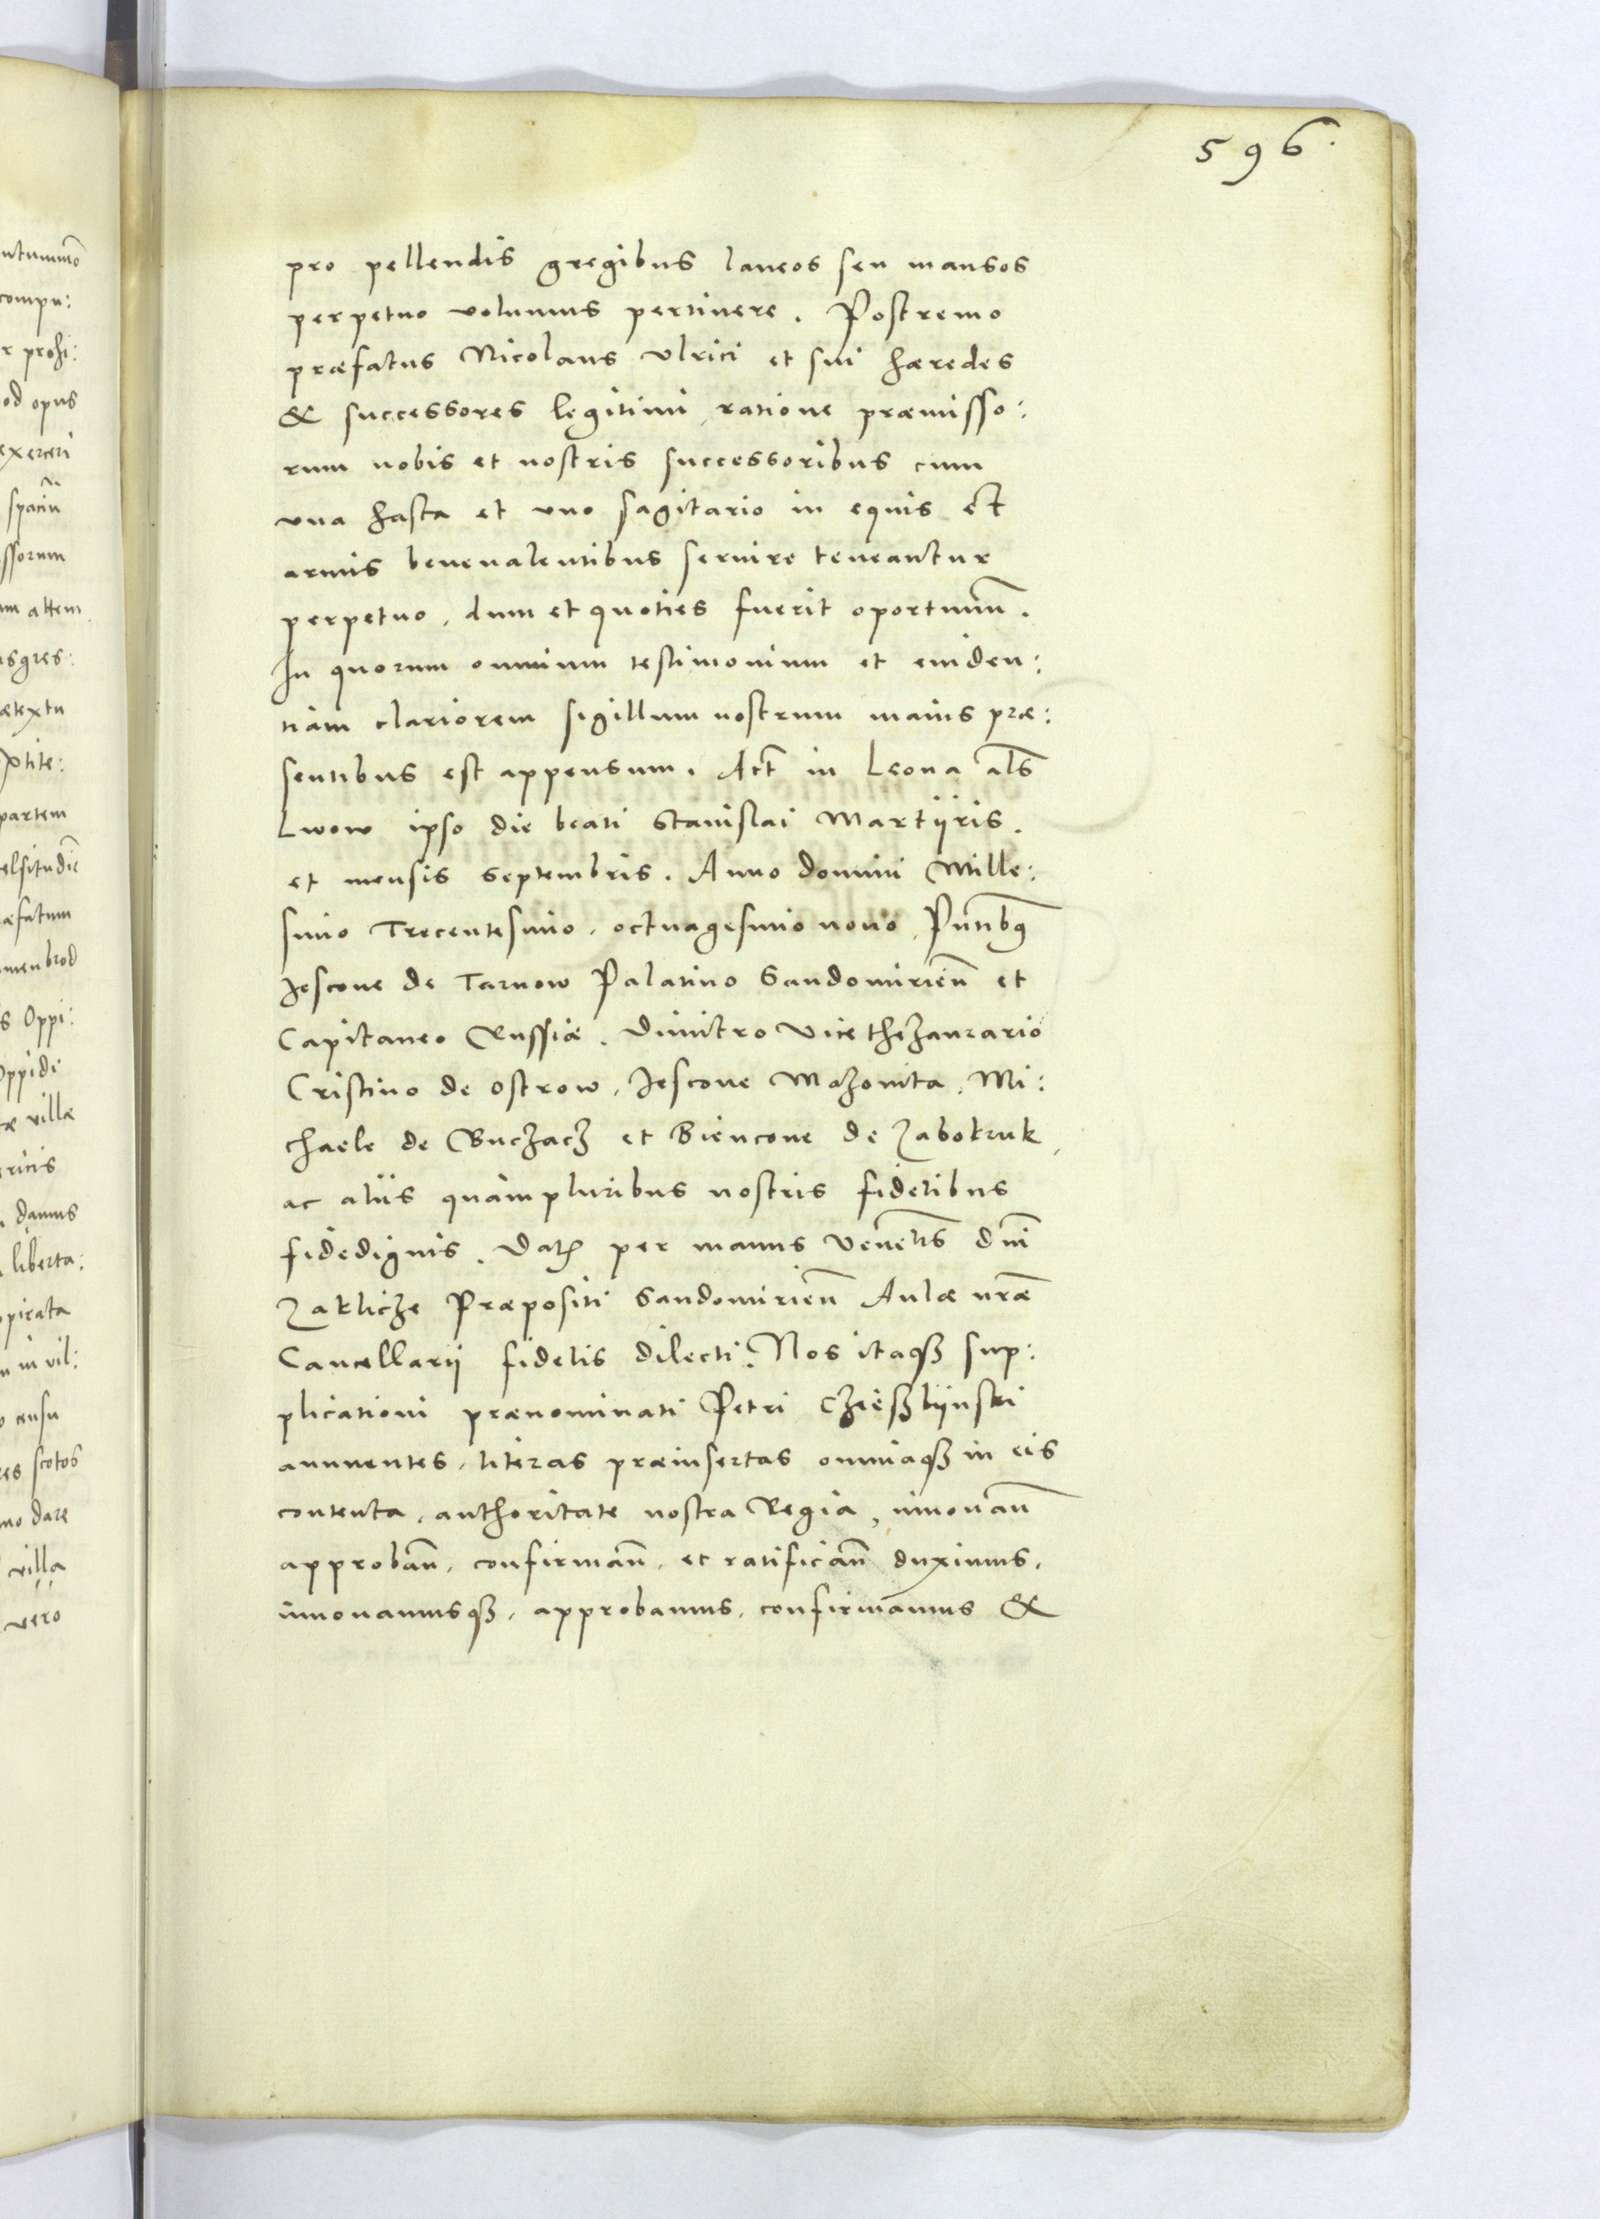 596.
pro pellendis gregibus laneos seu mansos
perpetuo volumus pertinere. Postremo
præfatus Nicolaus Vlrici et sui hæredes
& successores legitimi, ratione præmisso:
rum nobis et nostris successoribus cum
vna hasta et vno sagitario in equis et
armis beneualentibus seruire teneantur
perpetuo, dum et quoties fuerit oportunũ.
In quorum omnium testimonium et euiden:
tiam clariorem sigillum nostrum maius præ:
sentibus est appensum. Act̃ in Leona als̃
Lwow ipso die beati Stanislai Martÿris.
et mensis Septembris. Anno domini Mille:
simo Trecentesimo, octuagesimo nono, Pñtibꝰ
Jescone de Tarnow Palatino Sandomirieñ et
Capitaneo Russiæ. Dimitro Vicethezaurario
Cristino de Ostrow, Jescone Mazouita, Mi:
chaele de Buczacz et Biencone de Zabokruk,
ac aliis quampluribus nostris fidelibus
fidedignis. Datꝭ per manus Venelis̃ dñi
Zaklicze Præpositi Sandomirieñ Aulæ nr̃æ
Cancellarii fidelis dilecti. Nos itaqꝫ sup:
plicationi prænominati Petri Czieszlÿnski
annuentes, literas præinsertas omniaqꝫ in eis
contenta, authoritate nostra Regia, innouañ
approbañ, confirmañ, et ratificañ duximus,
innouamusqꝫ, approbamus, confirmamus &